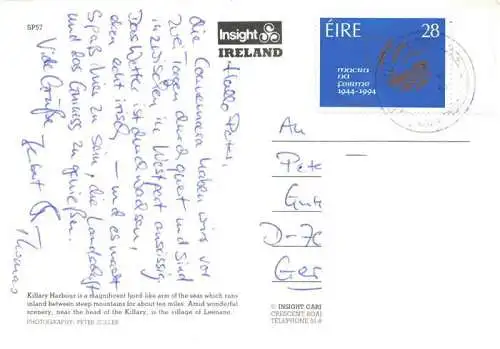 SP57
Insight
IRELAND
ÉIRE 28
MACRA
NA
FEIRME
1944-1994
Hallo Peter,
die Connemara haben wir vor
zwei Tagen durchquert und sind
inzwischen in Westport ansässig.
Das Wetter ist durchwachsen,
eben echt irisch – und es macht
Spaß hier zu sein, die Landschaft
und das Guiness zu genießen.
Viele Grüße
Thomas
An
Pete
D-7
Ger
Killary Harbour is a magnificent fjord-like arm of the sea which runs
inland between steep mountains for about ten miles. Amid wonderful
scenery, near the head of the Killary, is the village of Leenane.
PHOTOGRAPHY: PETER ZÖLLER
© INSIGHT CAR
CRESCENT ROA
TELEPHONE 01-